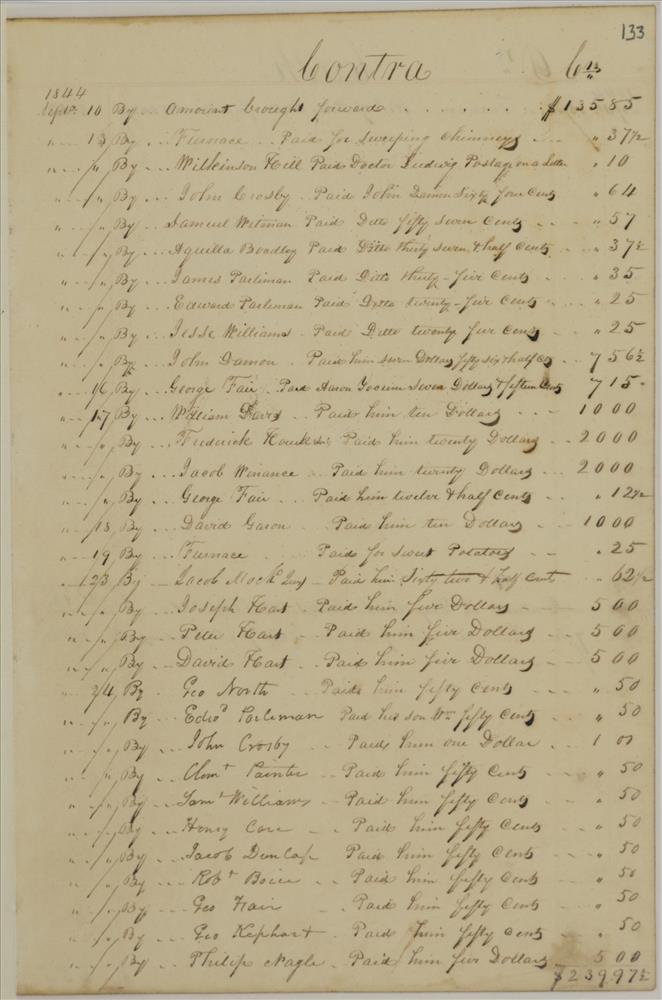 133
Contra Crs
1844
Septr 10 By Amount brought forward $135 85
" 13 By Furnace Paid for sweeping Chimneys " 37½
" " By Wilkinson Hill Paid Doctor Ludwig Postage on a Letter " 10
" " By John Crosby Paid John Damon Sixty four Cents " 64
" " By Samuel Witman Paid Ditto fifty Seven Cents " 57
" " By Aquilla Boadley Paid Ditto thirty seven & half Cents " 37½
" " By James Parliman Paid Ditto thirty-five Cents " 35
" " By Edward Parliman Paid Ditto twenty-five Cents " 25
" " By Jesse Williams Paid Ditto twenty five Cents " 25
" " By John Damon Paid him seven Dollars fifty six & half Cts 7 56½
" 16 By George Fair Paid Aaron Yocum Seven Dollars & fifteen Cents 7 15
" 17 By William Davis Paid him ten Dollars 10 00
" " By Frederick Paid him twenty Dollars 20 00
" " By Jacob Winance Paid him twenty Dollars 20 00
" " By George Fair Paid him twelve & half Cents " 12½
" 18 By David Garon Paid him ten Dollars 10 00
" 19 By Furnace Paid for Sweet Potatoes " 25
" 23 By Jacob Mock Junr Paid him Sixty two & half Cents " 62½
" " By Joseph Hart Paid him five Dollars 5 00
" " By Peter Hart Paid him five Dollars 5 00
" " By David Hart Paid him five Dollars 5 00
" 24 By Geo North Paid him fifty Cents " 50
" " By Edwd Parliman Paid his son Wm fifty Cents " 50
" " By John Crosby Paid him one Dollar 1 00
" " By Clemt Painter Paid him fifty Cents " 50
" " By Saml Williams Paid him fifty Cents " 50
" " By Henry Care Paid him fifty Cents " 50
" " By Jacob Dunlap Paid him fifty Cents " 50
" " By Robt Boice Paid him fifty Cents " 50
" " By Geo Hair Paid him fifty Cents " 50
" " By Geo Kephart Paid him fifty Cents " 50
" " By Philip Nagle Paid him five Dollars 5 00
$239.97½